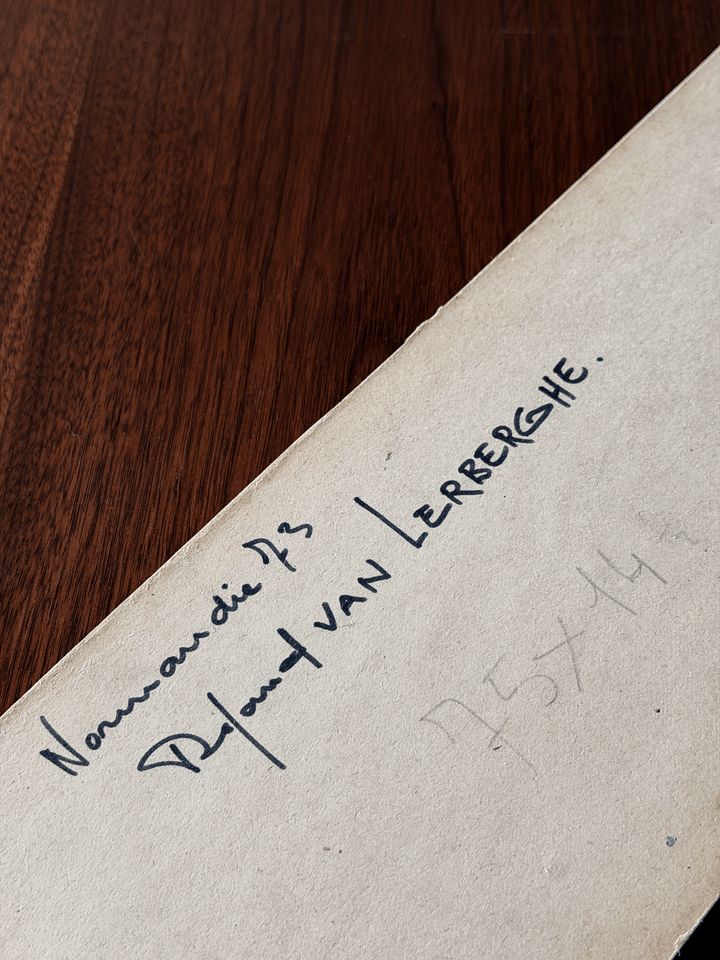 Normandie 73
Roland VAN LERBERGHE.
75x14